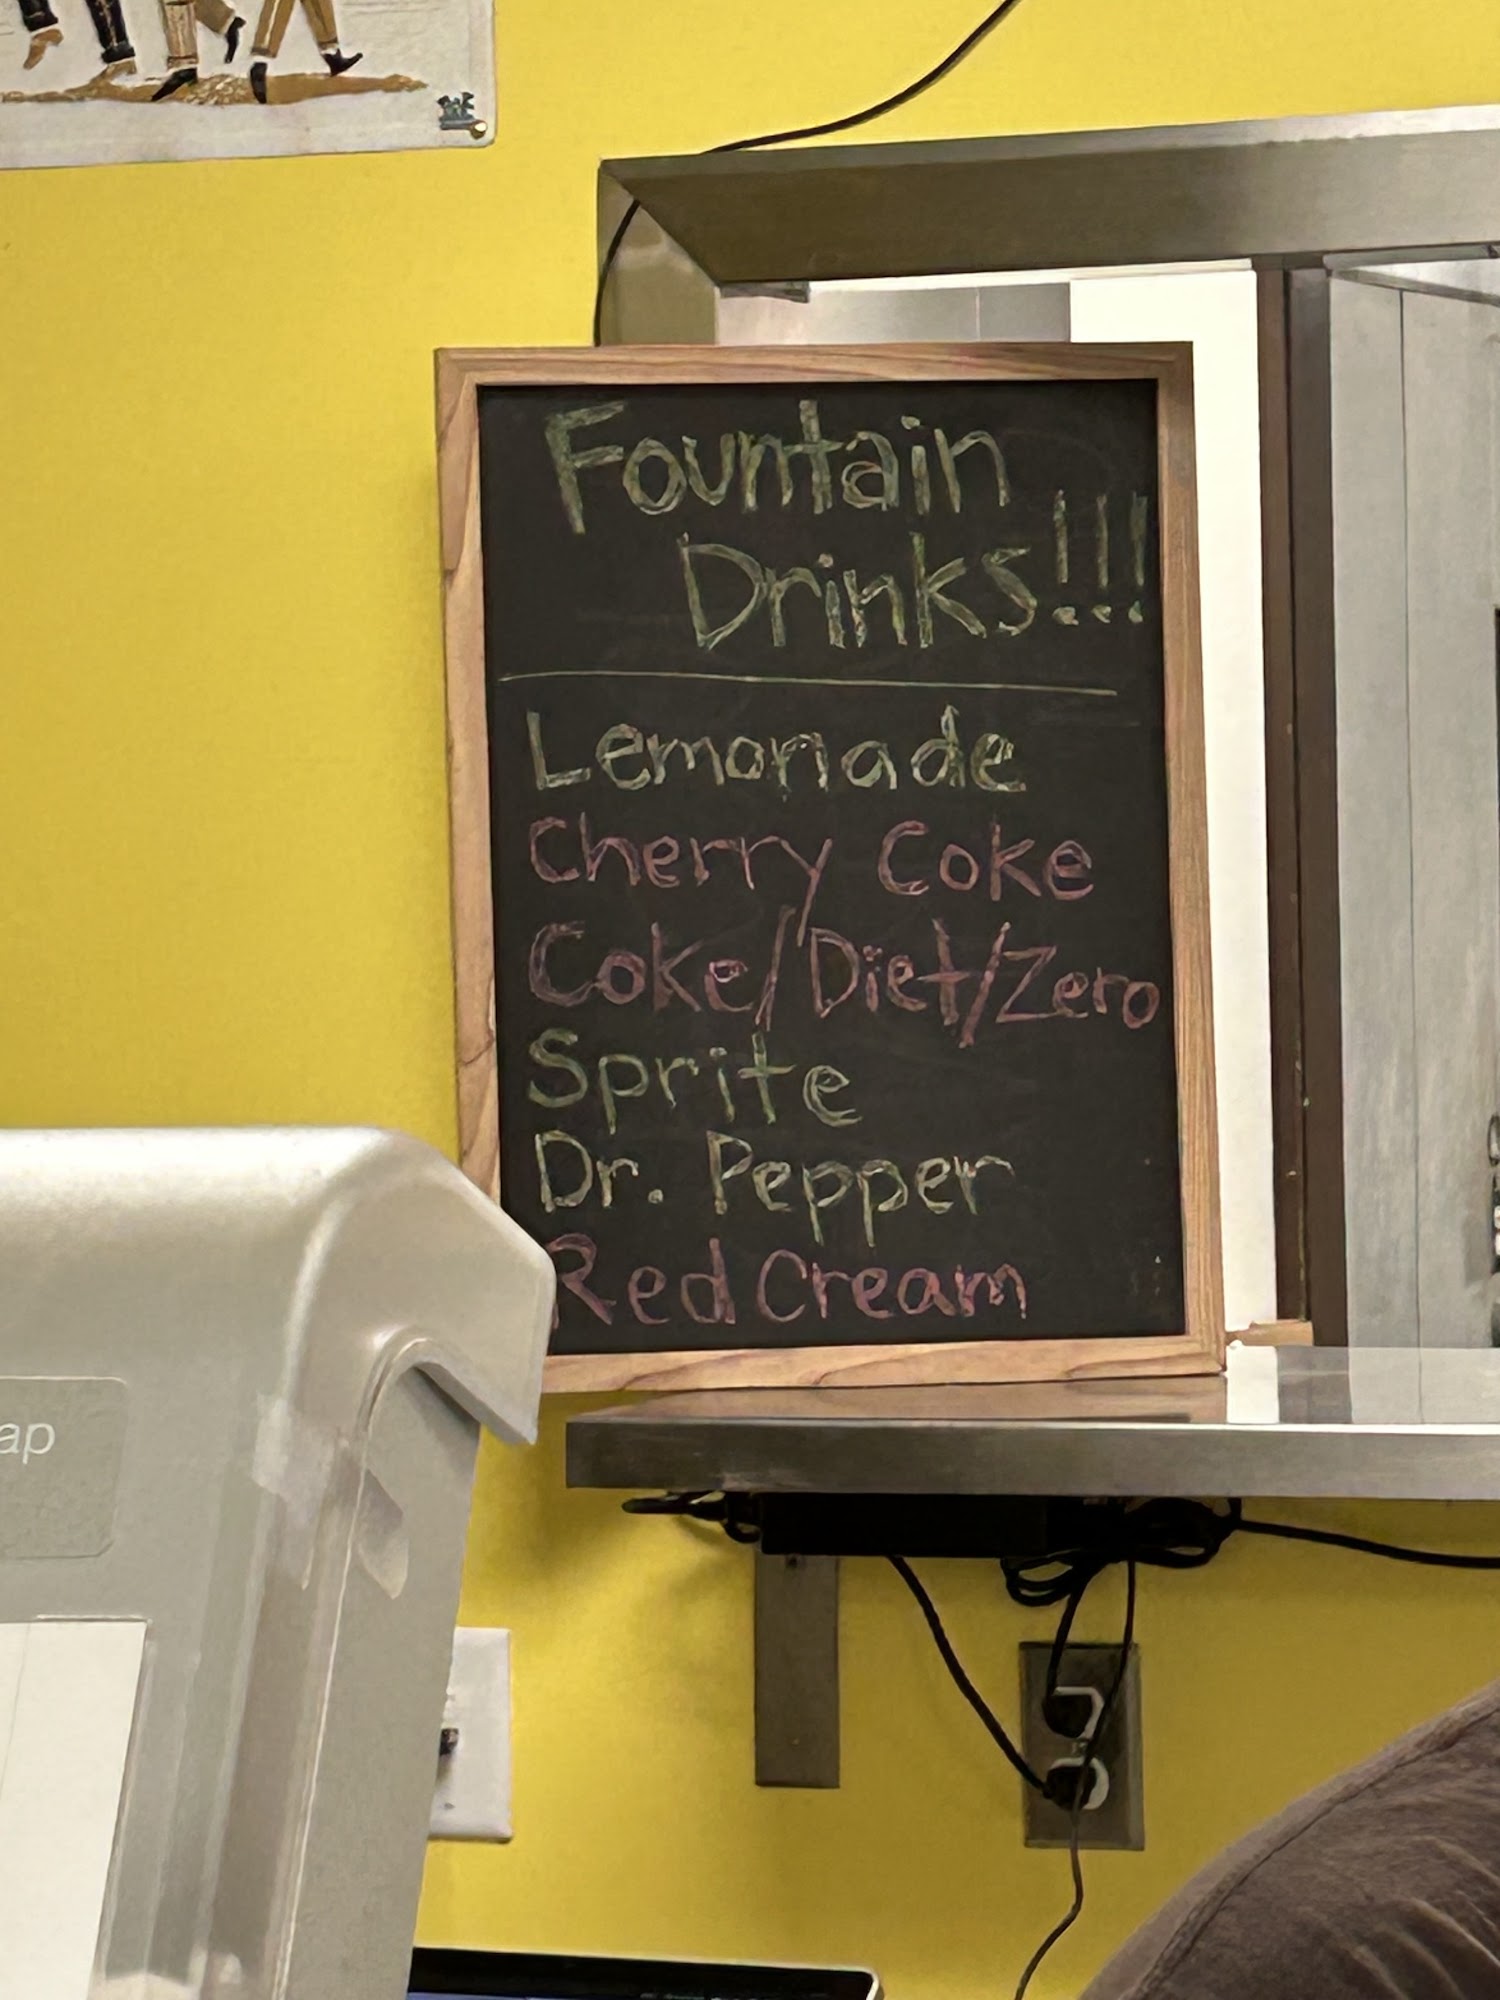 Fountain
Drinks!!!
Lemonade
Cherry Coke
Coke/Diet/Zero
Sprite
Dr. Pepper
Red Cream
ap